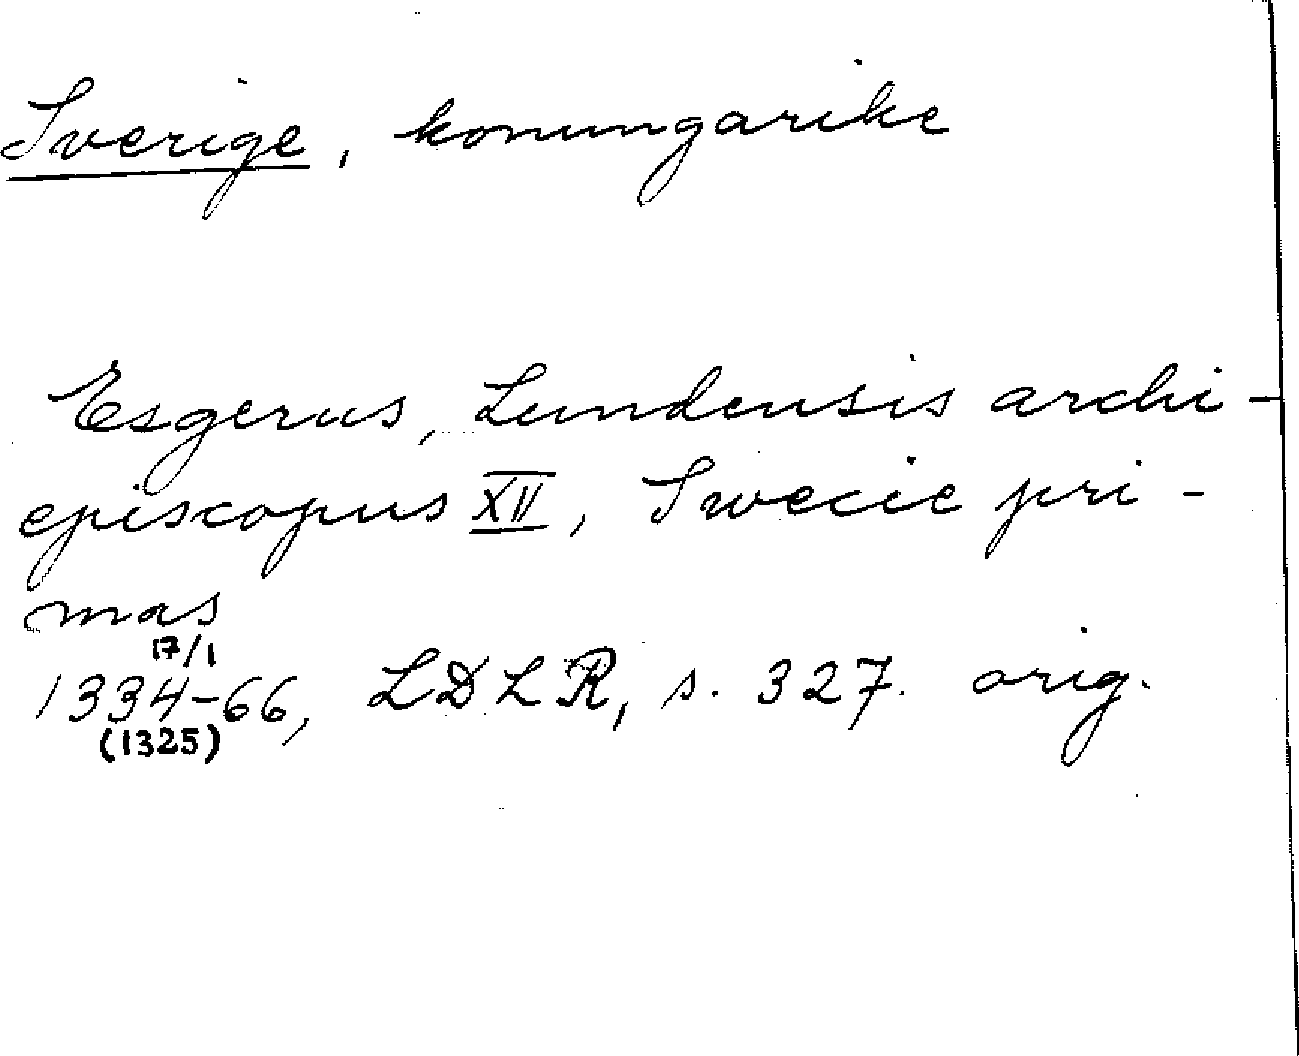 Sverige, konungarike
Esgerus, Lundensis archi-
episcopus XII, Swecie pri-
mas
17/1
1334-66, LDLR, s. 327. orig.
(1325)